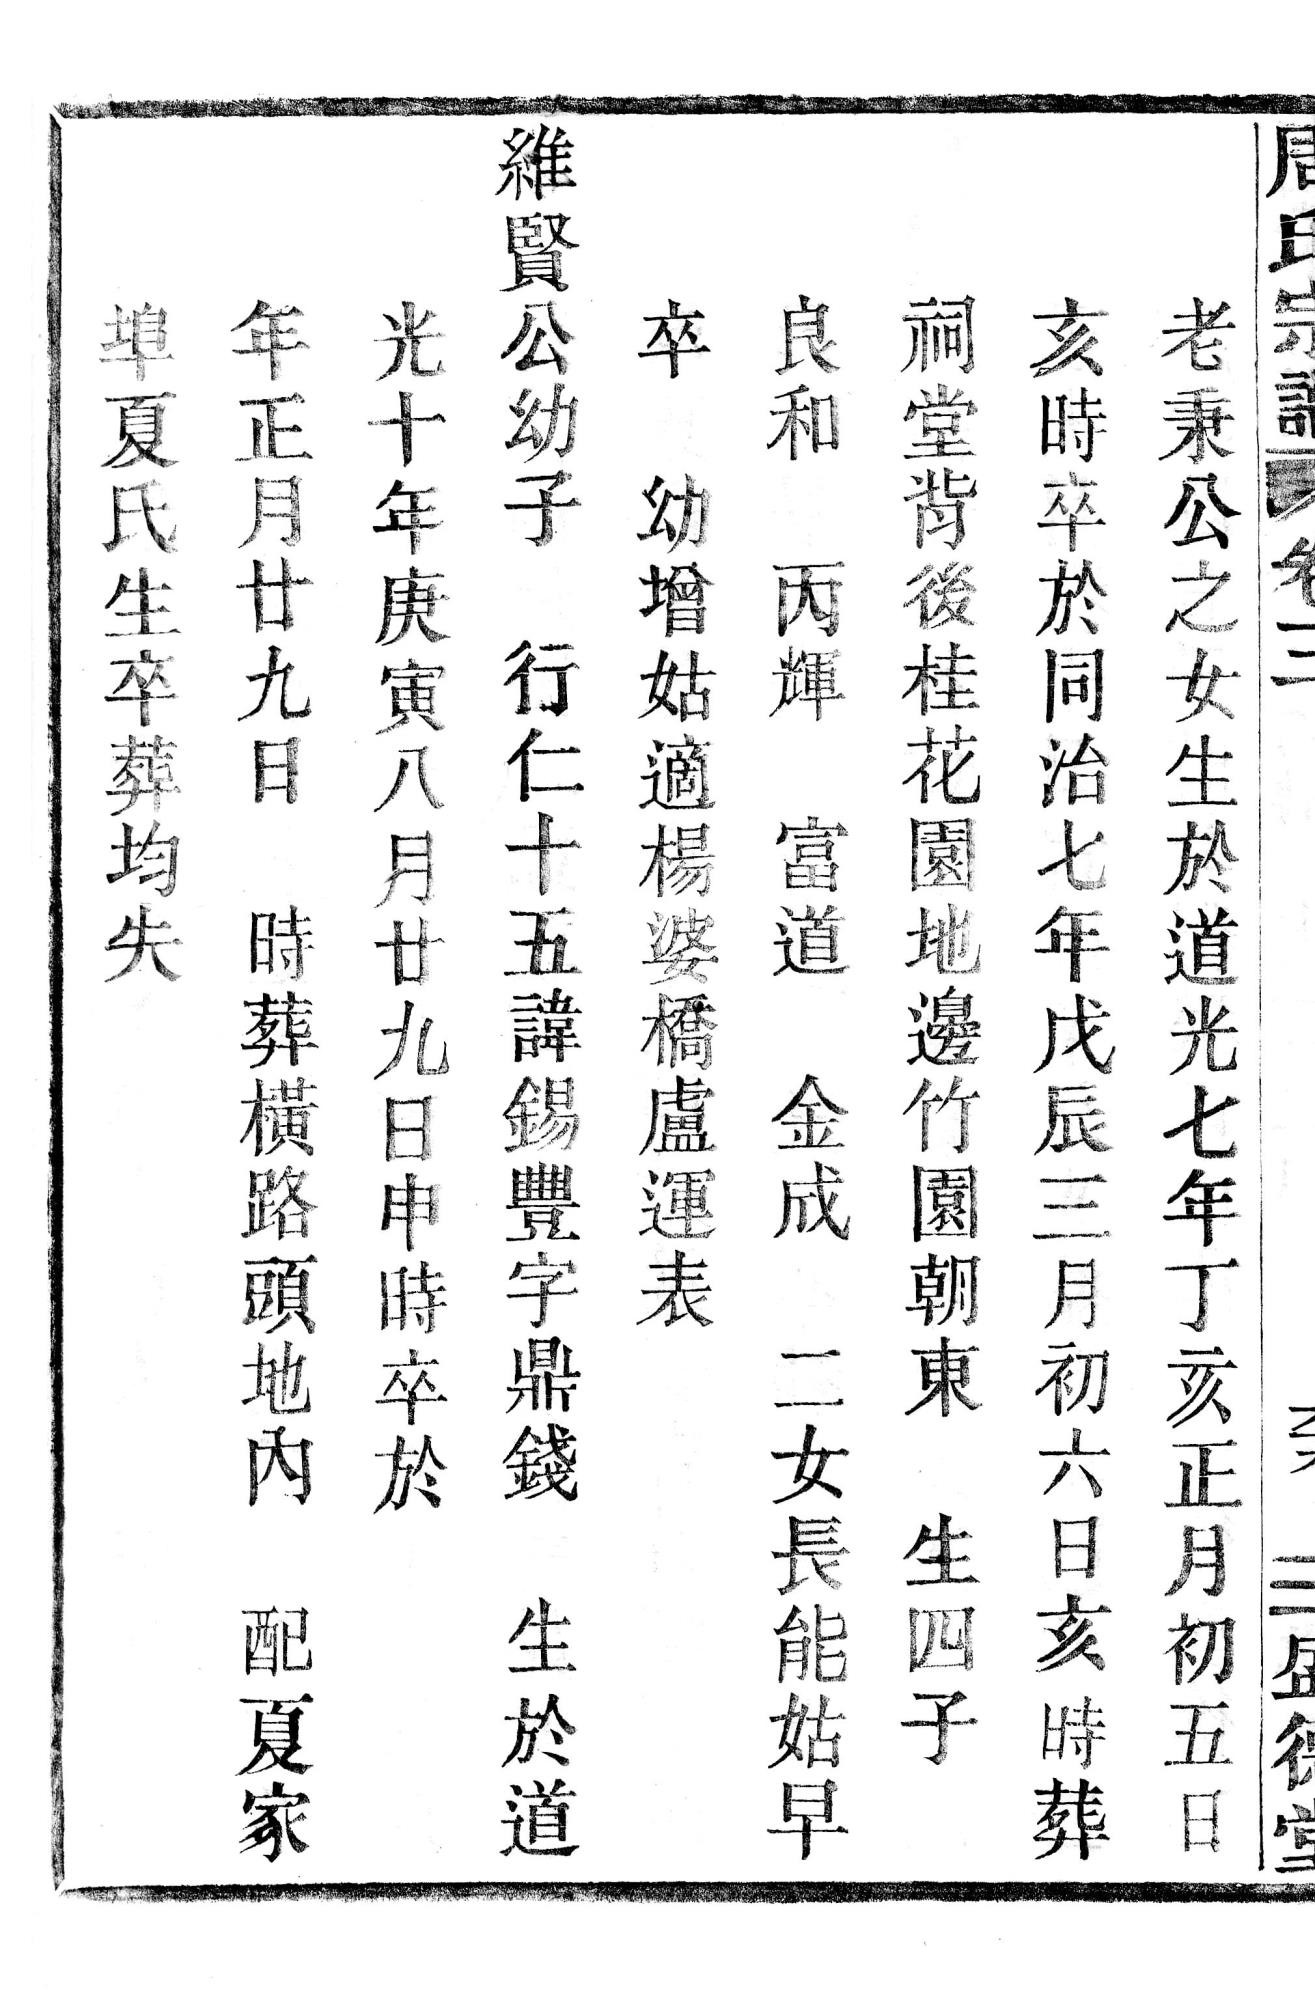 周氏宗譜 卷二 三盛德堂
老秉公之女生於道光七年丁亥正月初五日
亥時卒於同治七年戊辰三月初六日亥時葬
祠堂背後桂花園地邊竹園朝東 生四子
良和 丙輝 富道 金成 二女長能姑早
卒 幼增姑適楊婆橋盧運表
維賢公幼子 行仁十五諱錫豐字鼎錢 生於道
光十年庚寅八月廿九日申時卒於
年正月廿九日 時葬橫路頭地內 配夏家
埠夏氏生卒葬均失